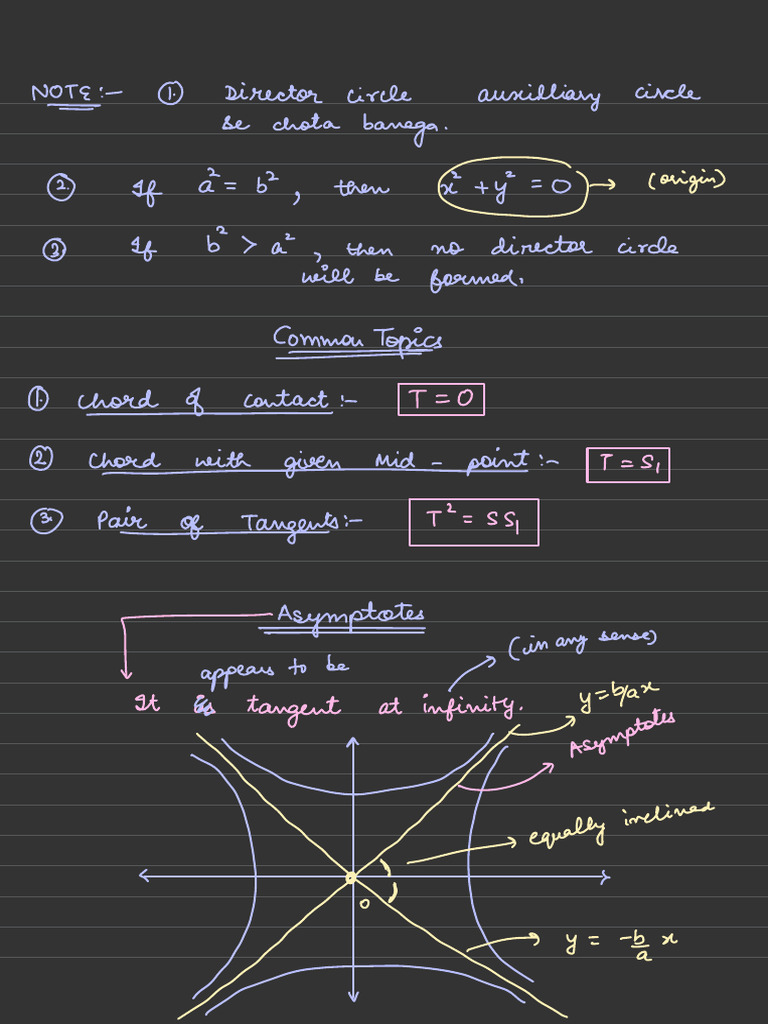 NOTE:- ① Director circle auxilliary circle
se chota banega.
② If a² = b², then x² + y² = 0 → (origin)
③ If b² > a², then no director circle
will be formed.
Common Topics
① Chord of contact:- T = 0
② Chord with given Mid-point:- T = S₁
③ Pair of Tangents:- T² = SS₁
Asymptotes
(in any sense)
appears to be
It is tangent at infinity.
y = b/ax
Asymptotes
equally inclined
O
y = -b/a x